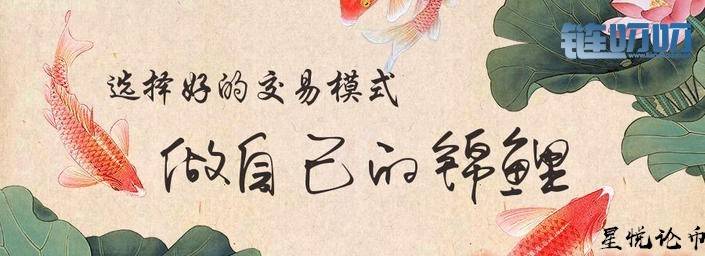 链叨叨
选择好的交易模式
做自己的锦鲤
星悦论币